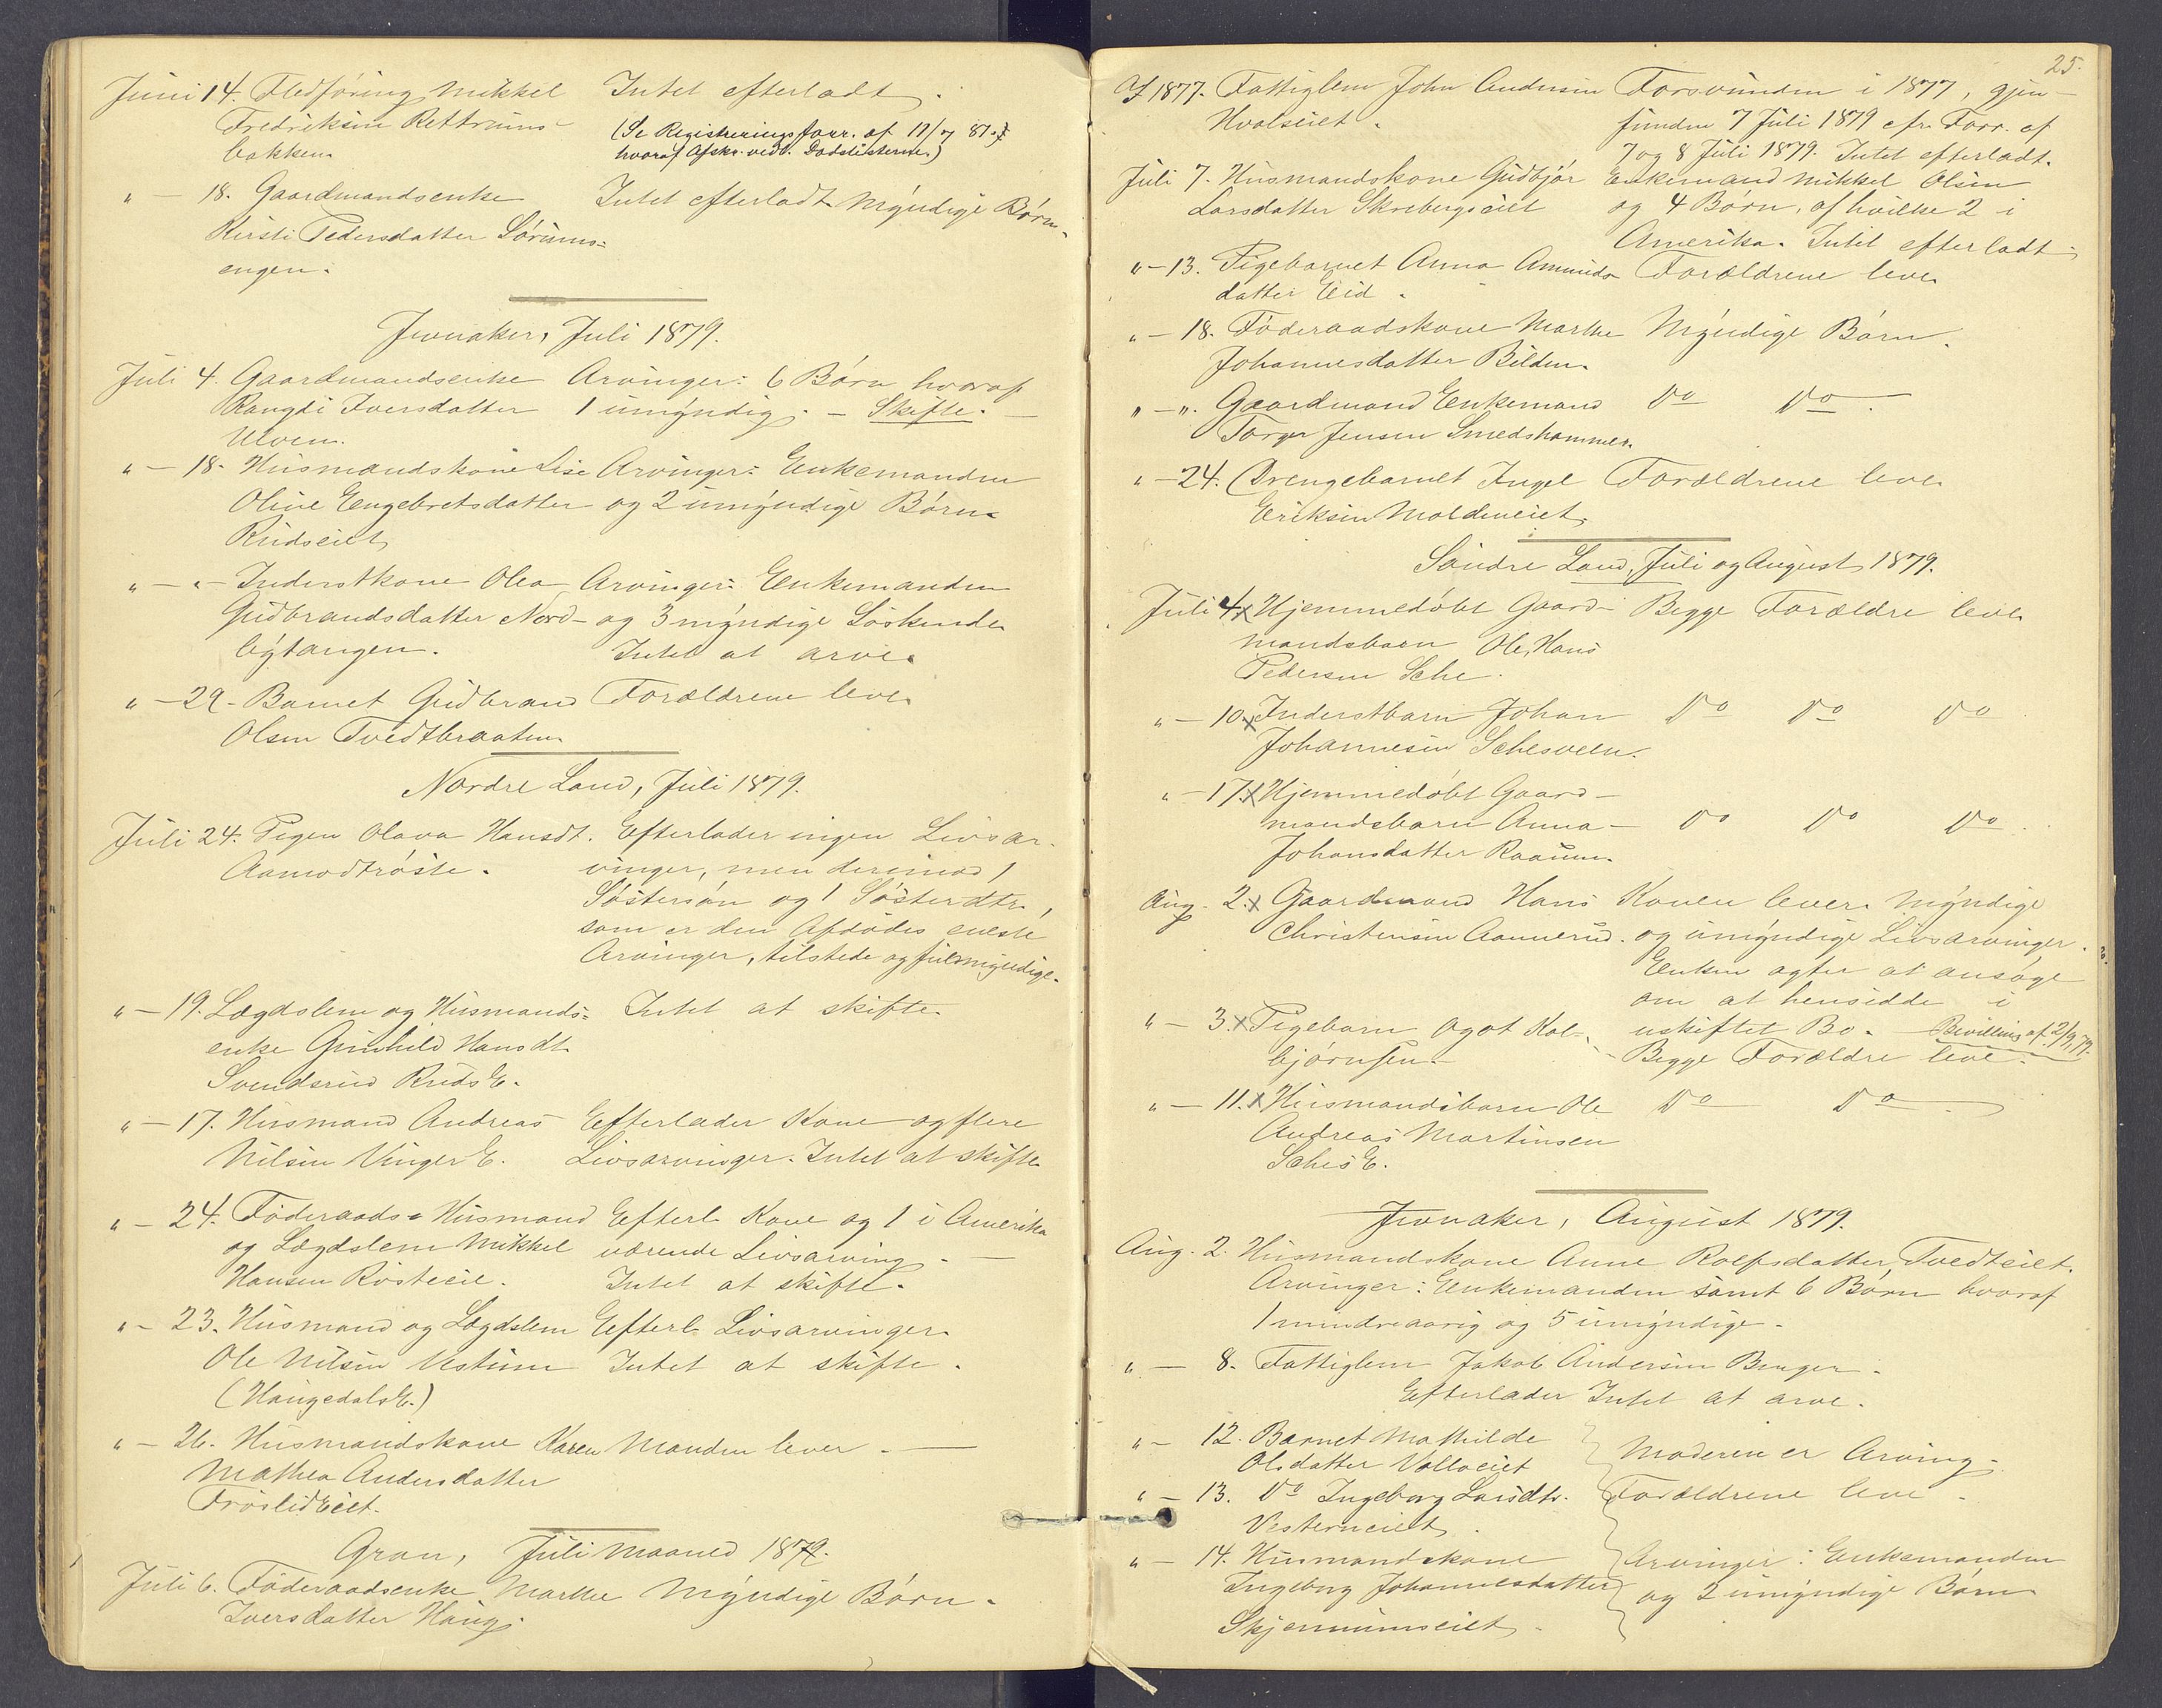 Juni 14. Fledføring Mikkel Intet efterladt.
Fredriksen Rettrums- (Se Registreringsforr. af 11/7 81
bakken hvoraf Afskr. vedl. Dødslisterne.)
" — 18. Gaardmandsenke Intet efterladt. Myndige Børn.
Kirsti Pedersdatter Sørums-
engen.
Jevnaker, Juli 1879.
Juli 4. Gaardmandsenke Arvinger: 6 Børn hvoraf
Rangdi Iversdatter 1 umyndig. — Skifte. —
Ulven.
" — 18. Husmandskone Lise Arvinger: Enkemanden
Oline Engebretsdatter og 2 umyndige Børn.
Rudseiet
" — " — Inderstkone Olea Arvinger: Enkemanden
Gudbrandsdatter Nord- og 3 myndige Søskende
bytangen. Intet at arve.
" — 29. Barnet Gudbrand Forældrene leve.
Olsen Tvedtbraaten.
Nordre Land, Juli 1879.
Juli 24. Pigen Olava Hansdt. Efterlader ingen Livsar-
Aamodtrøste. vinger, men derimod 1
Søstersøn og 1 Søsterdtr.,
som er den Afdødes eneste
Arvinger, tilstede og fulmyndige.
" — 19. Lægdslem og Husmands- Intet at skifte.
enke Gunhild Hansdt.
Svendsrud RudsE.
" — 17. Husmand Andreas Efterlader Kone og flere
Nilsen VingerE. Livsarvinger. Intet at skifte
" — 24. Føderaads-Husmand Efterl. Kone og 1 i Amerika
og Lægdslem Mikkel værende Livsarving. —
Hansen Rösteeie. Intet at skifte.
" — 23. Husmand og Lægdslem Efterl. Livsarvinger.
Ole Nilsen Vestrum Intet at skifte.
(HaugedalsE.)
" — 26. Husmandskone Karen Manden lever. —
Mathea Andersdatter
FrøslidEiet.
Gran, Juli Maaned 1879.
Juli 6. Føderaadsenke Marthe Myndige Børn.
Iversdatter Haug.
25.
Af 1877. Fattiglem John Andersen Forsvunden i 1877, gjen-
Hvalseiet. funden 7 Juli 1879 cfr. Forr. af
7 og 8 Juli 1879. Intet efterladt.
Juli 7. Husmandskone Gudbjør Enkemand Mikkel Olsen
Larsdatter Skrebergseiet og 4 Børn, af hvilke 2 i
Amerika. Intet efterladt.
" — 13. Pigebarnet Anna Amunds- Forældrene leve.
datter Eid.
" — 18. Føderaadskone Marthe Myndige Børn.
Johannesdatter Bilden.
" — ". Gaardmand Enkemand Do Do.
Torger Jensen Smedshammer.
" — 24. Drengebarnet Ingel Forældrene leve.
Eriksen Moldeneiet.
Søndre Land, Juli og August 1879.
Juli 4. x Hjemmedøbt Gaard- Begge Forældre leve.
mandsbarn Ole Hans
Pedersen Sche.
" — 10. x Inderstbarn Johan Do Do Do.
Johannesen Schesveen.
" — 17. x Hjemmedøbt Gaard-
mandsbarn Anna — Do Do Do.
Johansdatter Raaum.
Aug. 2. x Gaardmand Hans Konen lever. Myndige
Christensen Aannerud. og umyndige Livsarvinger.
Enken agter at ansøge
om at hensidde i
" — 3. x Pigebarn Agot Kol- uskiftet Bo. — Bevilling af 2/9 79.
bjørnsen. Begge Forældre leve.
" — 11. x Husmandsbarn Ole Do Do.
Andreas Martinsen
SchesE.
Jevnaker, August 1879.
Aug. 2. Husmandskone Anne Rolfsdatter, Tvedteiet.
Arvinger: Enkemanden samt 6 Børn hvoraf
1 mindreaarig og 5 umyndige.
" — 8. Fattiglem Jakob Andersen Benger.
Efterlader Intet at arve.
" — 12. Barnet Mathilde
Olsdatter Volloeiet Moderen er Arving.
" — 13. Do Ingeborg Larsdtr. Forældrene leve.
Vesterneiet.
" — 14. Husmandskone Arvinger: Enkemanden
Ingeborg Johannesdatter og 2 umyndige Børn
Skjerrumseiet.